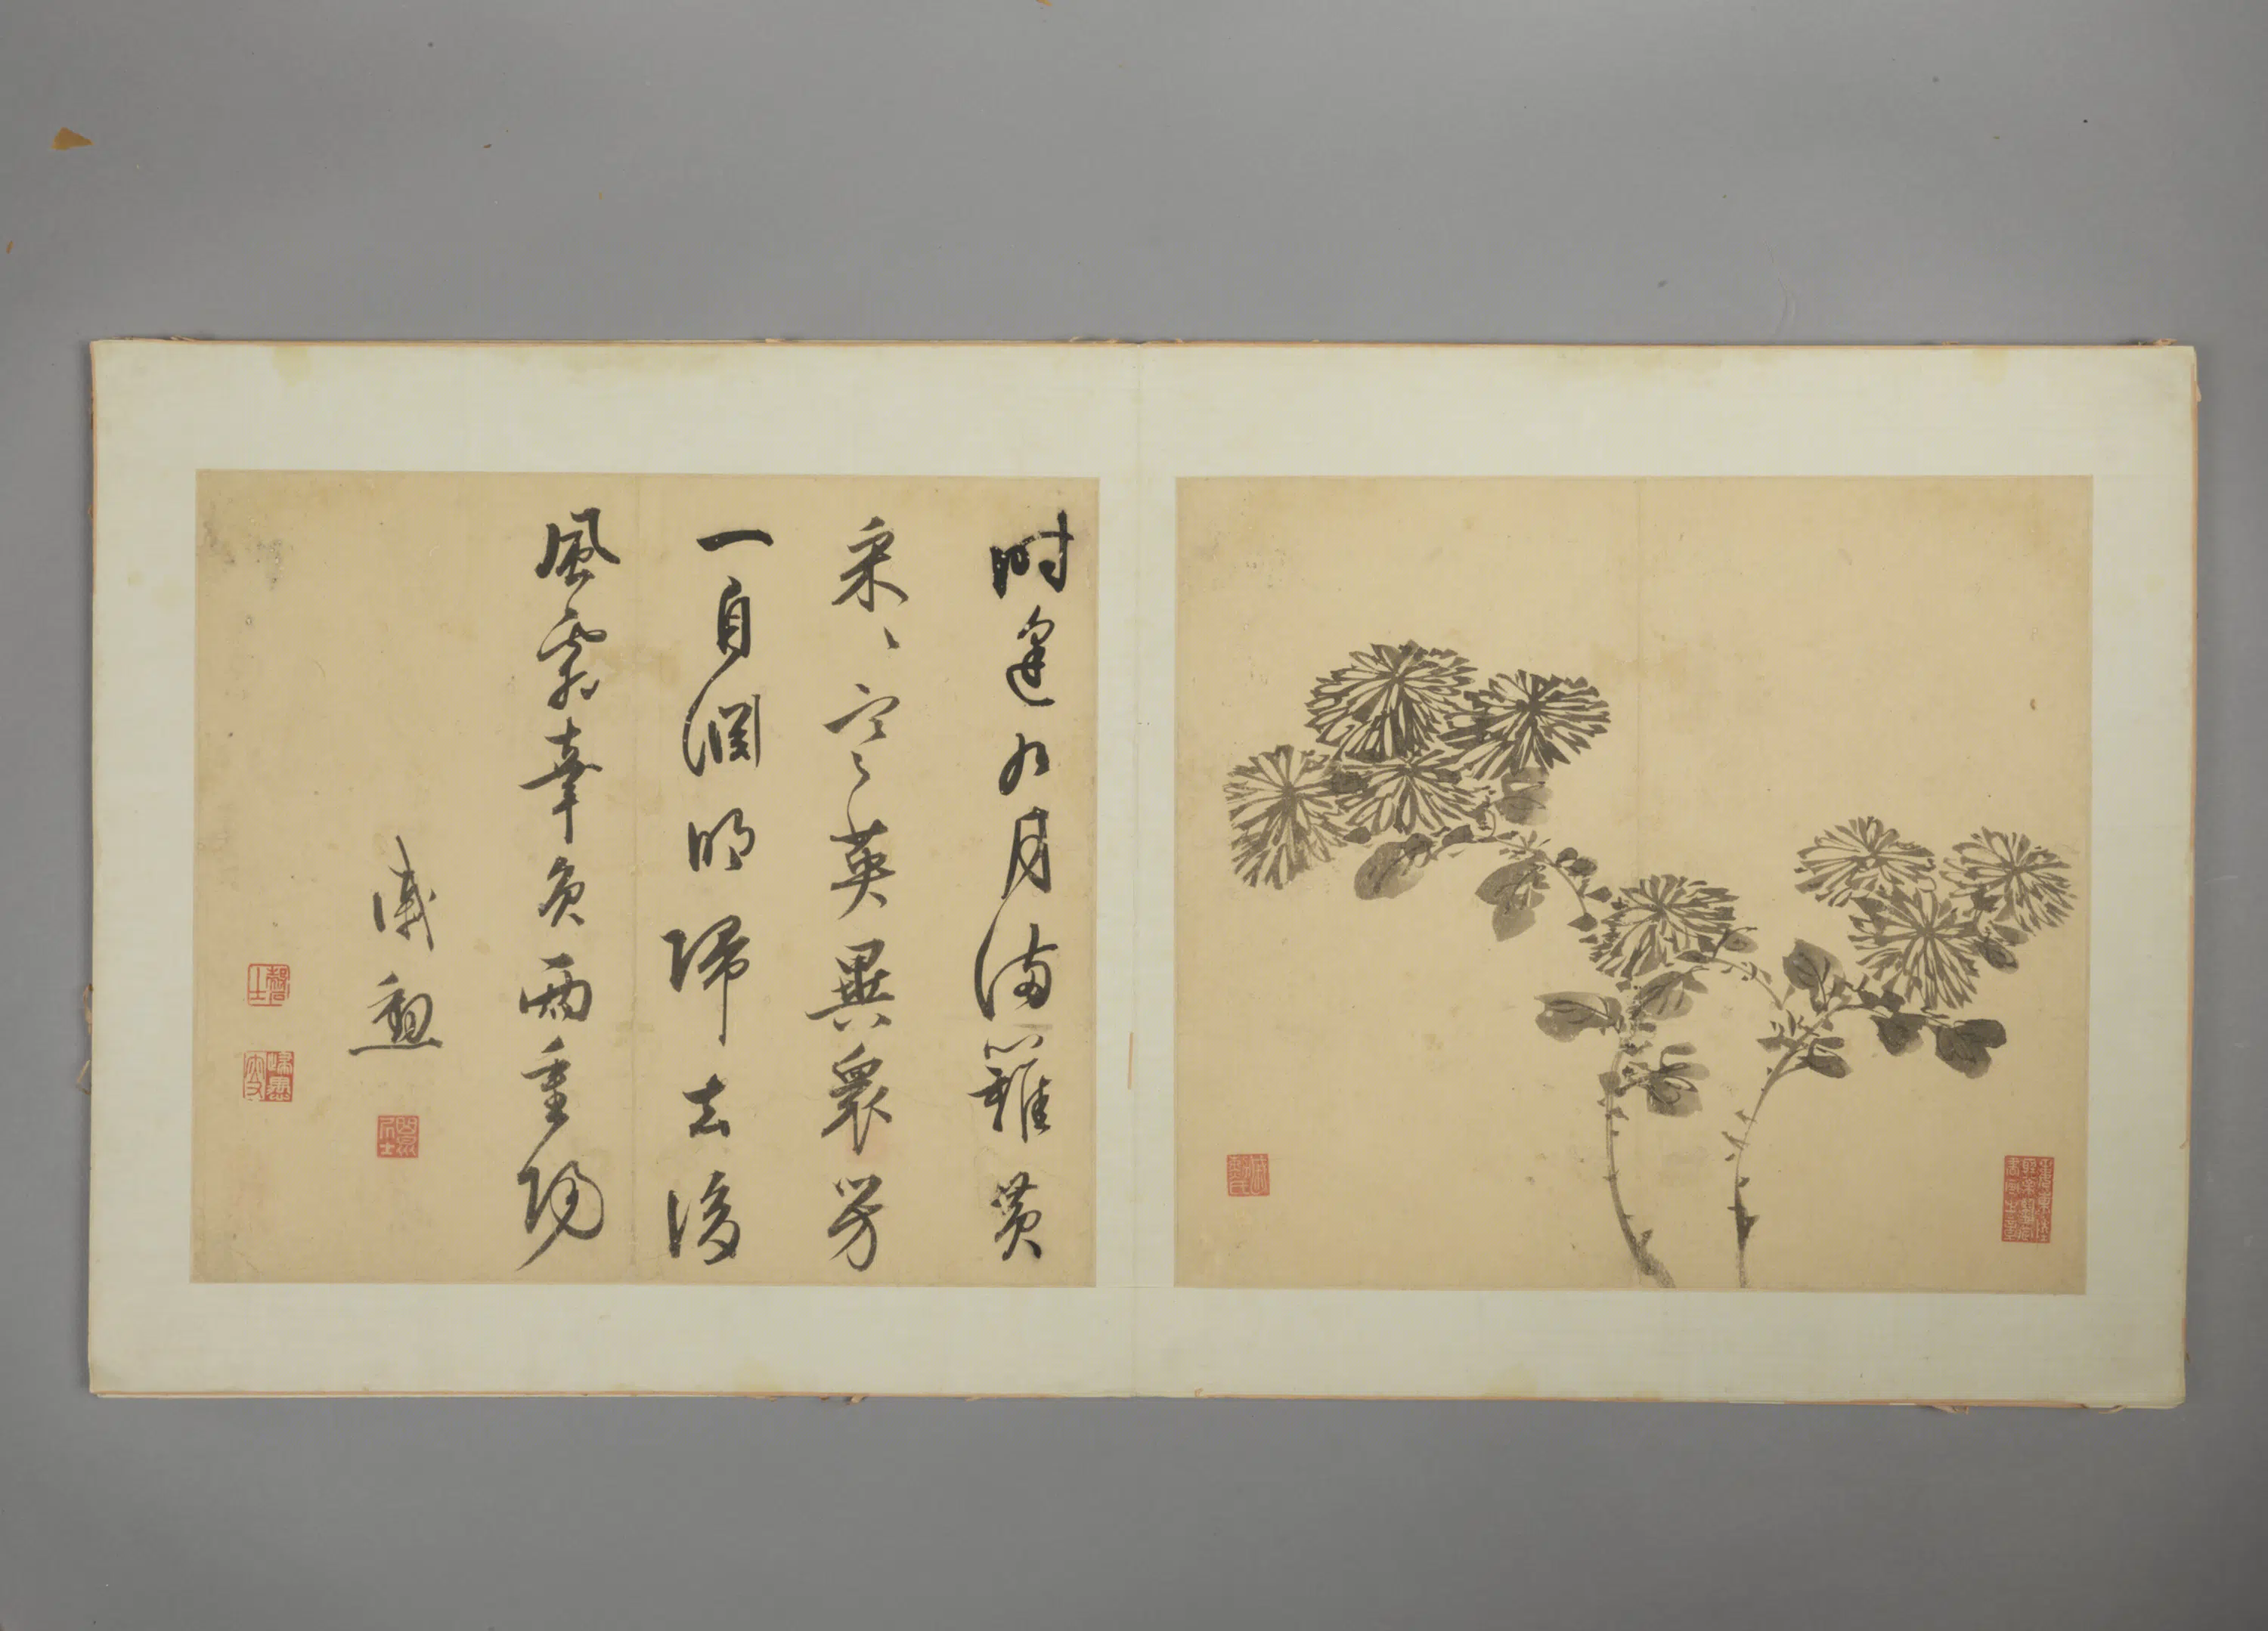 時逢九月滿籬黃
采〻寒英異衆芳
一自淵明歸去後
風霜辜負兩重陽
戚勳